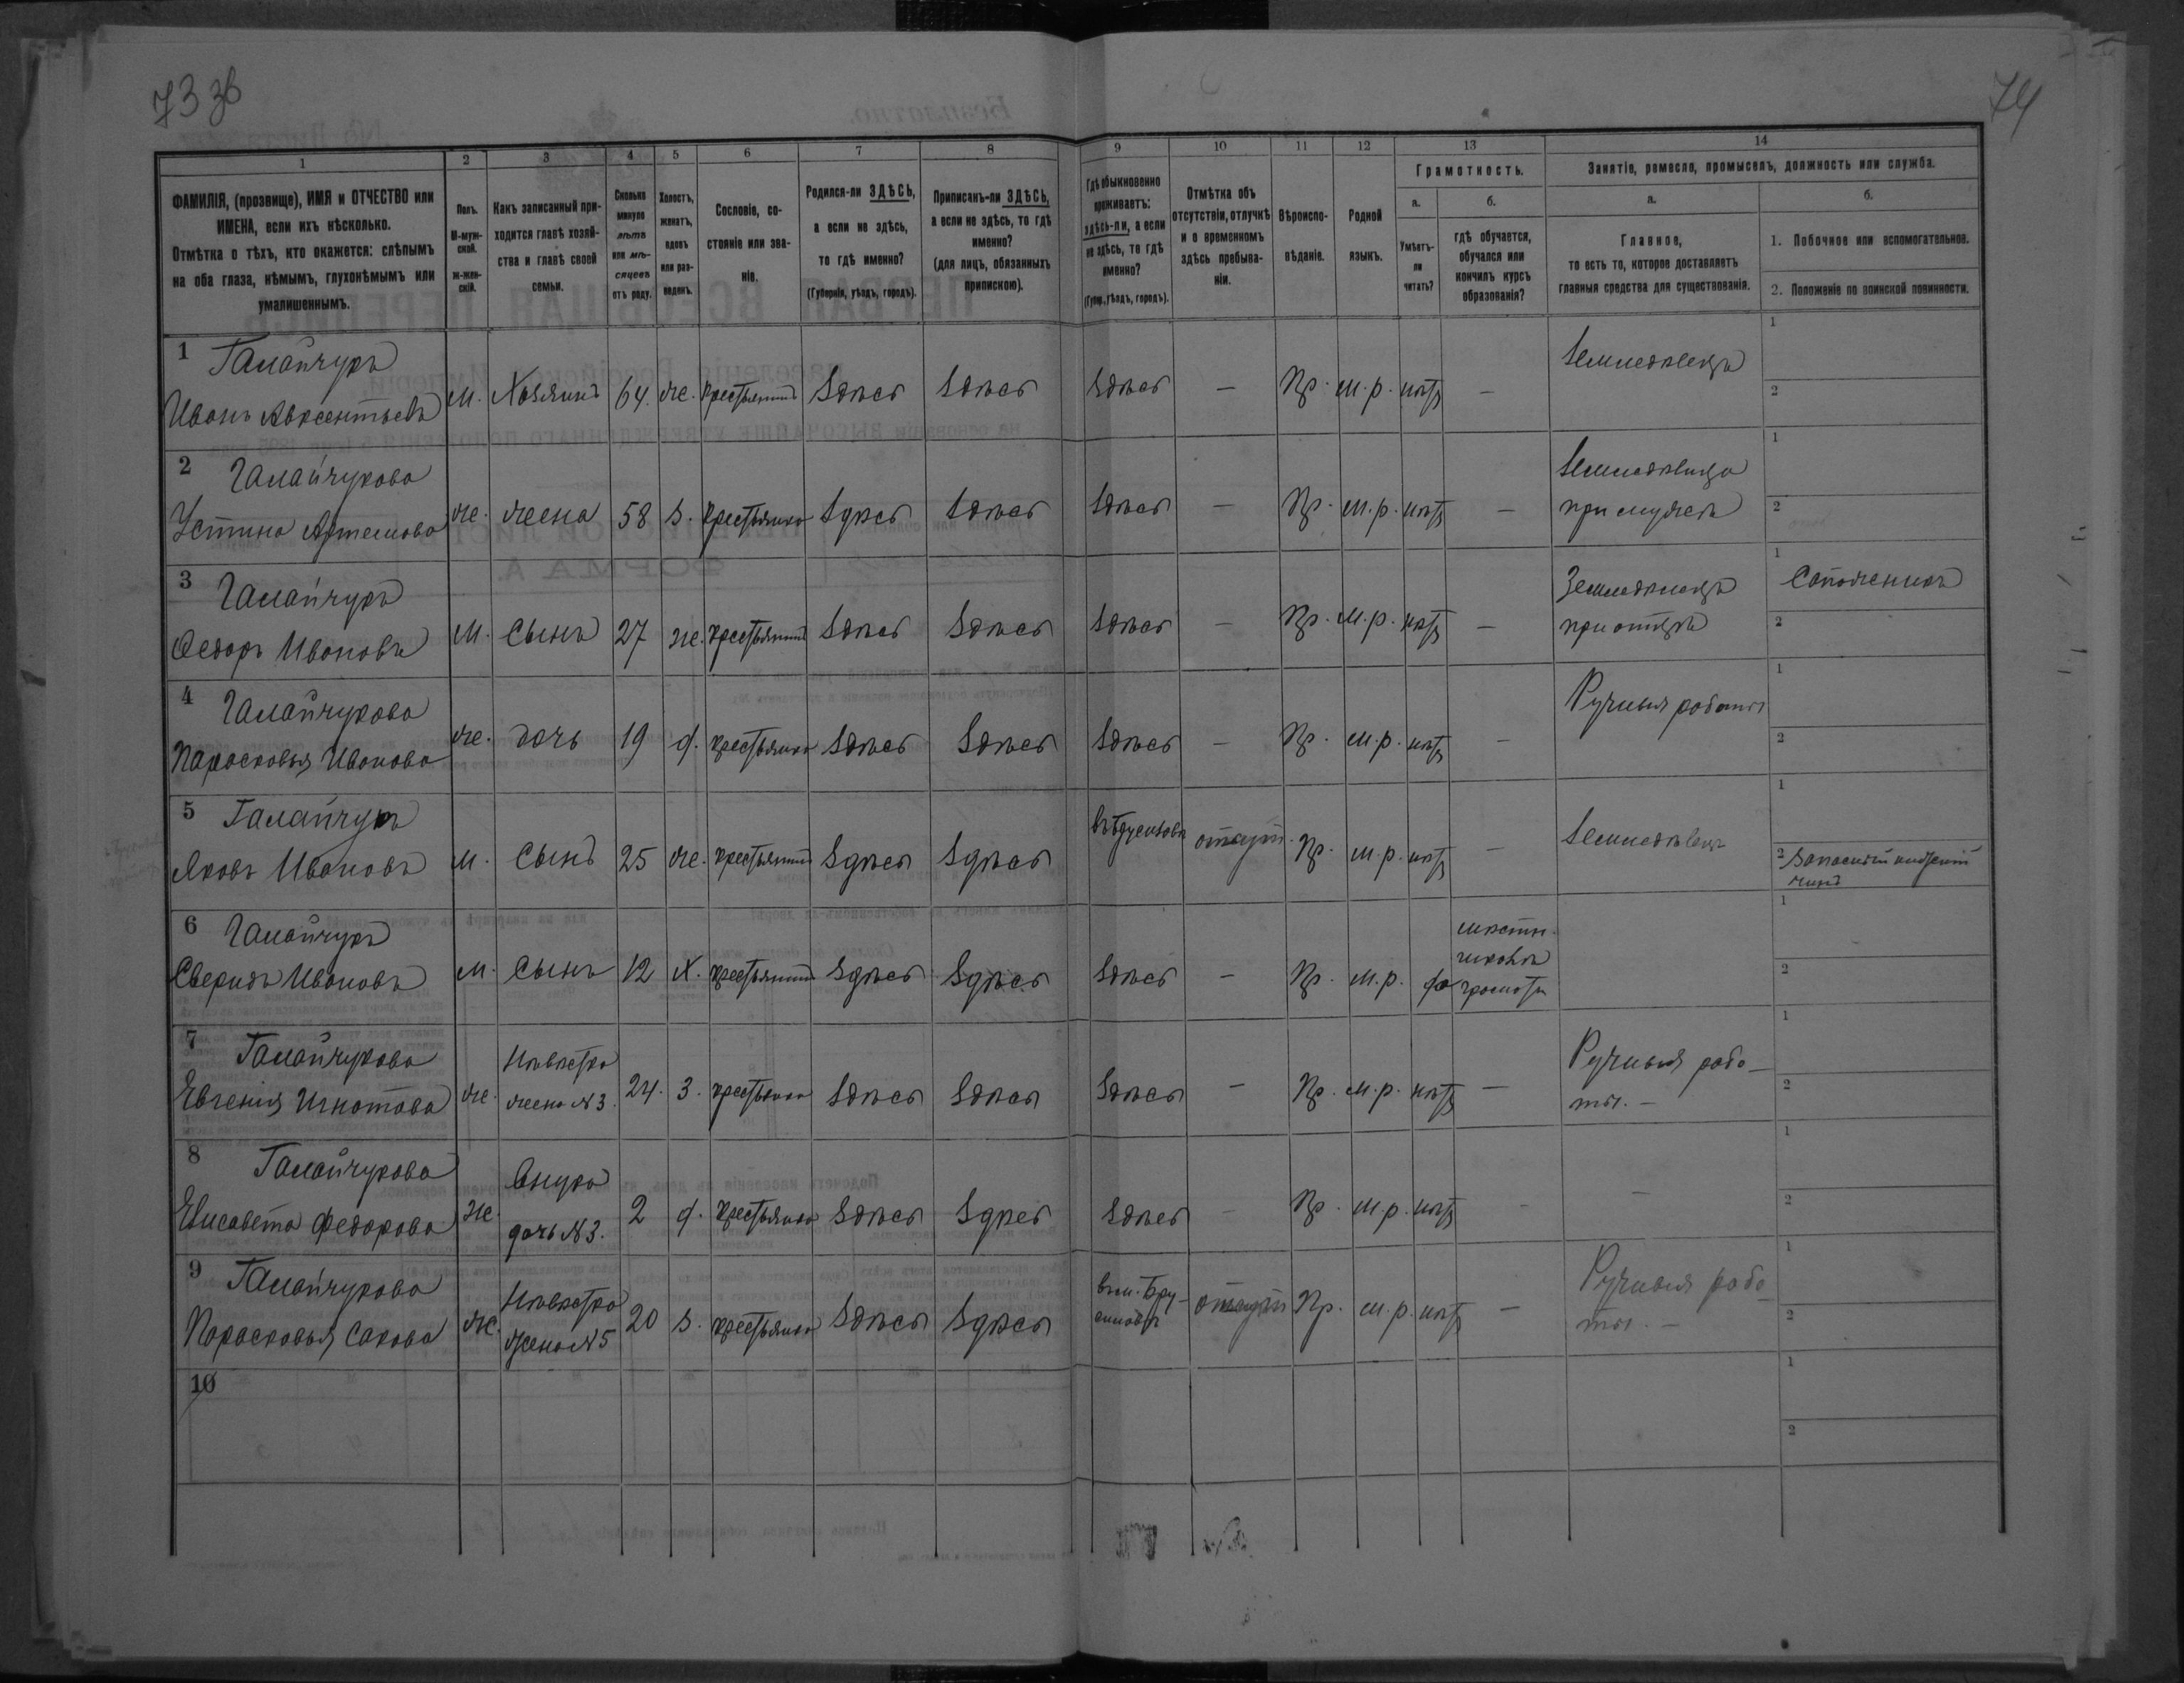 73 зв
74
1
2
3
4
5
6
7
8
9
10
11
12
13
14
ФАМИЛІЯ, (прозвище), ИМЯ и ОТЧЕСТВО или
ИМЕНА, если ихъ нѣсколько.
Отмѣтка о тѣхъ, кто окажется: слѣпымъ
на оба глаза, нѣмымъ, глухонѣмымъ или
умалишеннымъ.
Полъ.
М-муж-
ской.
ж-жен-
скій.
Какъ записанный при-
ходится главѣ хозяй-
ства и главѣ своей
семьи.
Сколько
минуло
лѣтъ
или мѣ-
сяцевъ
отъ роду.
Холостъ,
женатъ,
вдовъ
или раз-
веденъ.
Сословіе, со-
стояніе или зва-
ніе.
Родился-ли ЗДѢСЬ,
а если не здѣсь,
то гдѣ именно?
(Губернія, уѣздъ, городъ).
Приписанъ-ли ЗДѢСЬ,
а если не здѣсь, то гдѣ
именно?
(для лицъ, обязанныхъ
припискою).
Гдѣ обыкновенно
проживаетъ:
здѣсь-ли, а если
не здѣсь, то гдѣ
именно?
(Губер., уѣздъ, городъ).
Отмѣтка объ
отсутствіи, отлучкѣ
и о временномъ
здѣсь пребыва-
ніи.
Вѣроиспо-
вѣданіе.
Родной
языкъ.
Грамотность.
а.
Умѣетъ-
ли
читать?
б.
гдѣ обучается,
обучался или
кончилъ курсъ
образованія?
Занятіе, ремесло, промыселъ, должность или служба.
а.
Главное,
то есть то, которое доставляетъ
главныя средства для существованія.
б.
1. Побочное или вспомогательное.
2. Положеніе по воинской повинности.
1 Галайчукъ
Иванъ Авксентьевъ м. Хозяинъ 64. же. крестьянинъ Здѣсь Здѣсь Здѣсь — Пр. м.р. нѣтъ — Земледѣлецъ 1 2
2 Галайчукова
Устина Артемова же. жена 58 з. крестьянка Здѣсь Здѣсь Здѣсь — Пр. м.р. нѣтъ — Земледѣлица
при мужѣ 1 2
3 Галайчукъ
Федоръ Ивановъ м. Сынъ 27 же. крестьянинъ Здѣсь Здѣсь Здѣсь — Пр. м.р. нѣтъ — Земледѣлецъ
при отцѣ 1 Сапожникъ 2
4 Галайчукова
Парасковья Иванова же. дочь 19 д. крестьянка Здѣсь Здѣсь Здѣсь — Пр. м.р. нѣтъ — Ручныя работы 1 2
5 Галайчукъ
Яковъ Ивановъ м. Сынъ 25 же. крестьянинъ Здѣсь Здѣсь отсут. Пр. м.р. нѣтъ — Земледѣлецъ 1 2 Запасный нижній
чинъ
6 Галайчукъ
Свиридъ Ивановъ м. Сынъ 12 х. крестьянинъ Здѣсь Здѣсь Здѣсь — Пр. м.р. да
школѣ
грамоты 1 2
7 Галайчукова
Евгенія Игнатова же. Невѣстка
жена №3. 24. з. крестьянка Здѣсь Здѣсь Здѣсь — Пр. м.р. нѣтъ — Ручныя рабо-
ты. — 1 2
8 Галайчукова
Елисавета Федорова же. Внука
дочь №3. 2 д. крестьянка Здѣсь Здѣсь Здѣсь — Пр. м.р. нѣтъ — — 1 2
9 Галайчукова
Парасковья Сакова же. Невѣстка
жена №5 20 з. крестьянка Здѣсь Здѣсь отсут. Пр. м.р. нѣтъ — Ручныя рабо-
ты. — 1 2
10 1 2